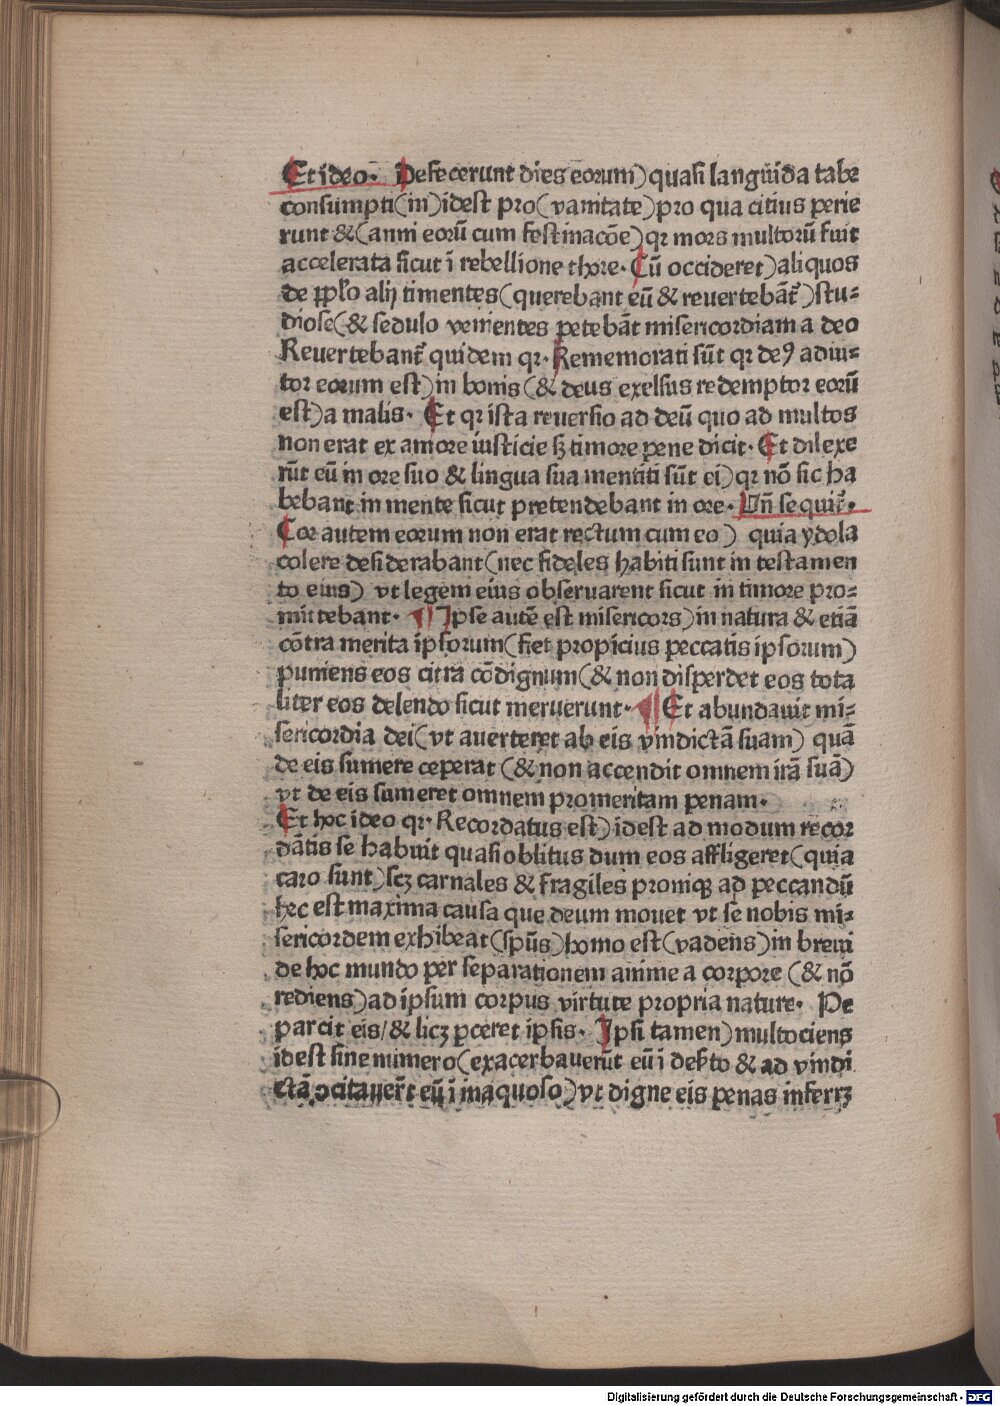 Et ideo. Defecerunt dies eorum) quasi languida tabe
consumpti(in)idest pro(vanitate)pro qua citius perie
runt &(anni eorū cum festinacōe)qr mors multorū fuit
accelerata sicut ī rebellione chore. Cū occideret)aliquos
de ppl'o alij timentes(querebant eū & reuertebāt᷑)stu⸗
diose(& sedulo venientes petebāt misericordiam a deo
Reuertebant᷑ quidem qr. Rememorati sūt qr deꝰ adiu⸗
tor eorum est)in bonis(& deus exelsus redemptor eorū
est)a malis. Et qr ista reuersio ad deū quo ad multos
non erat ex amore iusticie sꝫ timore pene dicit. Et dilexe
rūt eū in ore suo & lingua sua mentiti sūt ei)qr nō sic ha
bebant in mente sicut pretendebant in ore. Vn̄ sequit᷑.
Cor autem eorum non erat rectum cum eo) quia ydola
colere desiderabant(nec fideles habiti sunt in testamen
to eius) vt legem eius obseruarent sicut in timore pro⸗
mittebant. ¶ Ipse autē est misericors)in natura & etiā
cōtra merita ipsorum(fiet propicius peccatis ipsorum)
puniens eos citra cōdignum(& non disperdet eos tota
liter eos delendo sicut meruerunt. ¶ Et abundauit mi⸗
sericordia dei(vt auerteret ab eis vindictā suam) quā
de eis sumere ceperat (& non accendit omnem irā suā)
vt de eis sumeret omnem promeritam penam.
Et hoc ideo qr. Recordatus est)idest ad modum recor
dātis se habuit quasi oblitus dum eos affligeret(quia
caro sunt)scꝫ carnales & fragiles proniqꝫ ad peccandū
hec est maxima causa que deum mouet vt se nobis mi⸗
sericordem exhibeat(spūs)homo est(vadens)in breui
de hoc mundo per separationem anime a corpore (& nō
rediens)ad ipsum corpus virtute propria nature. Pe
parcit eis/& licꝫ ꝑceret ipsis. Ipsi tamen)multociens
idest sine numero(exacerbauerūt eū ī des'to & ad vindi
ctā ↄcitauer̄t eū ī inaquoso)vt digne eis penas inferrꝫ
Digitalisierung gefördert durch die Deutsche Forschungsgemeinschaft - DFG